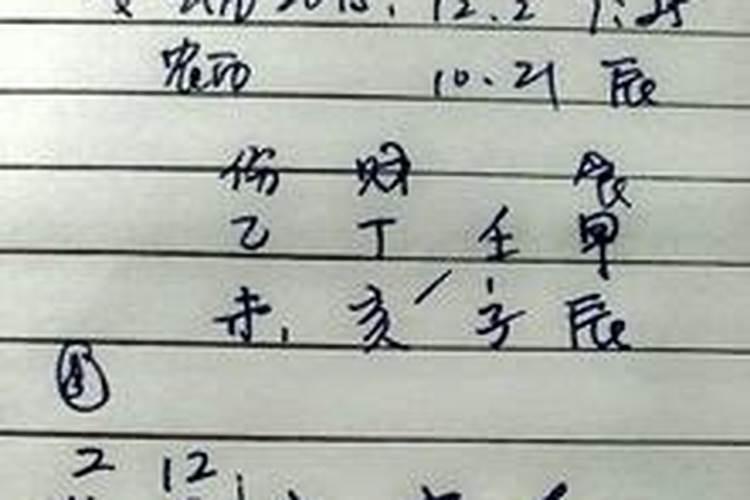 2015.12.2
农历 10.21 辰
伤 财 食
乙 丁 壬 甲
未 亥 子 辰
2 12